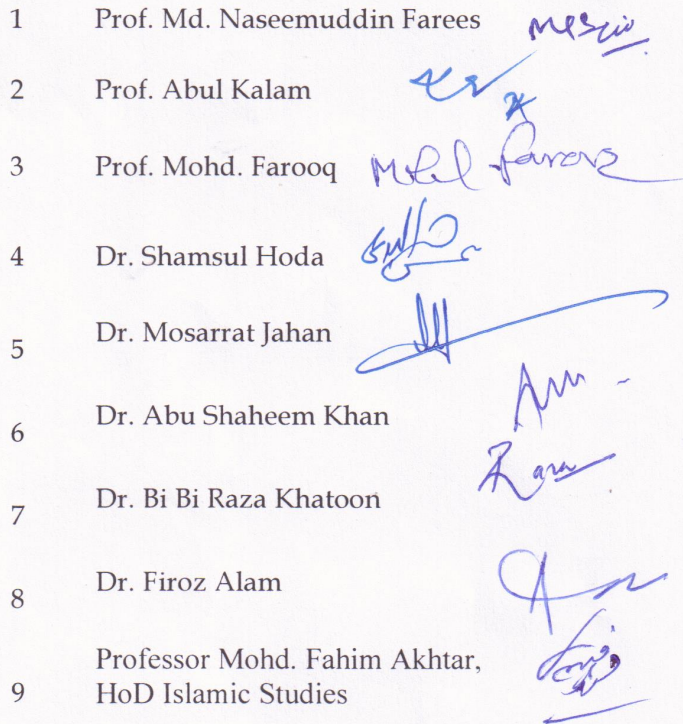 1 Prof. Md. Naseemuddin Farees
2 Prof. Abul Kalam
3 Prof. Mohd. Farooq
4 Dr. Shamsul Hoda
5 Dr. Mosarrat Jahan
6 Dr. Abu Shaheem Khan
7 Dr. Bi Bi Raza Khatoon
8 Dr. Firoz Alam
Professor Mohd. Fahim Akhtar,
9 HoD Islamic Studies